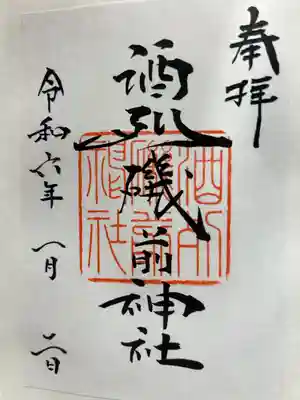 奉拝
酒列磯前神社
令和六年 一月 二日
酒列
磯前
神社